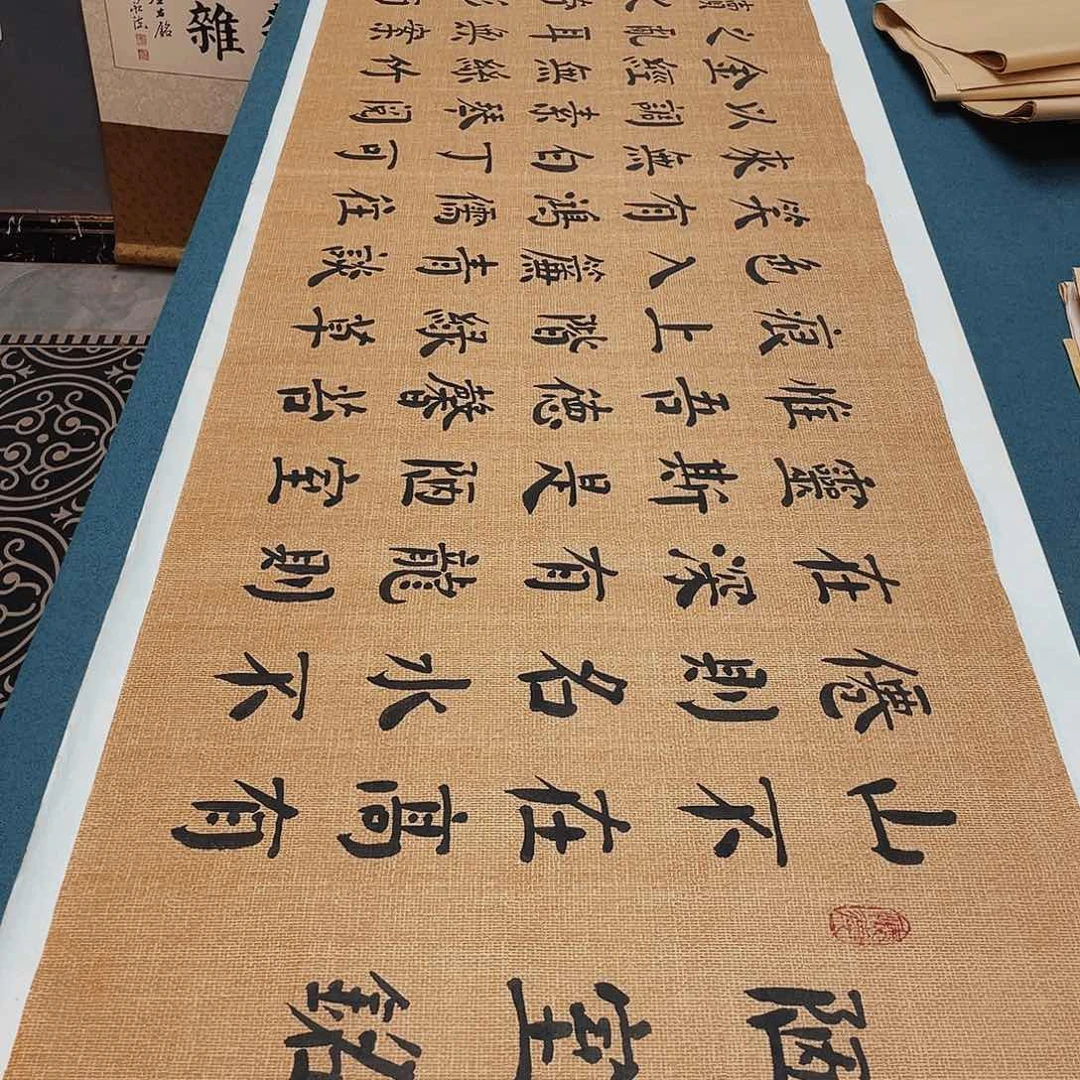 陋室銘
山不在高有
僊則名水不
在深有龍則
靈斯是陋室
惟吾德馨苔
痕上階綠草
色入簾青談
笑有鴻儒往
來無白丁可
以調素琴閱
金經無絲竹
之亂耳無案
牘
雜